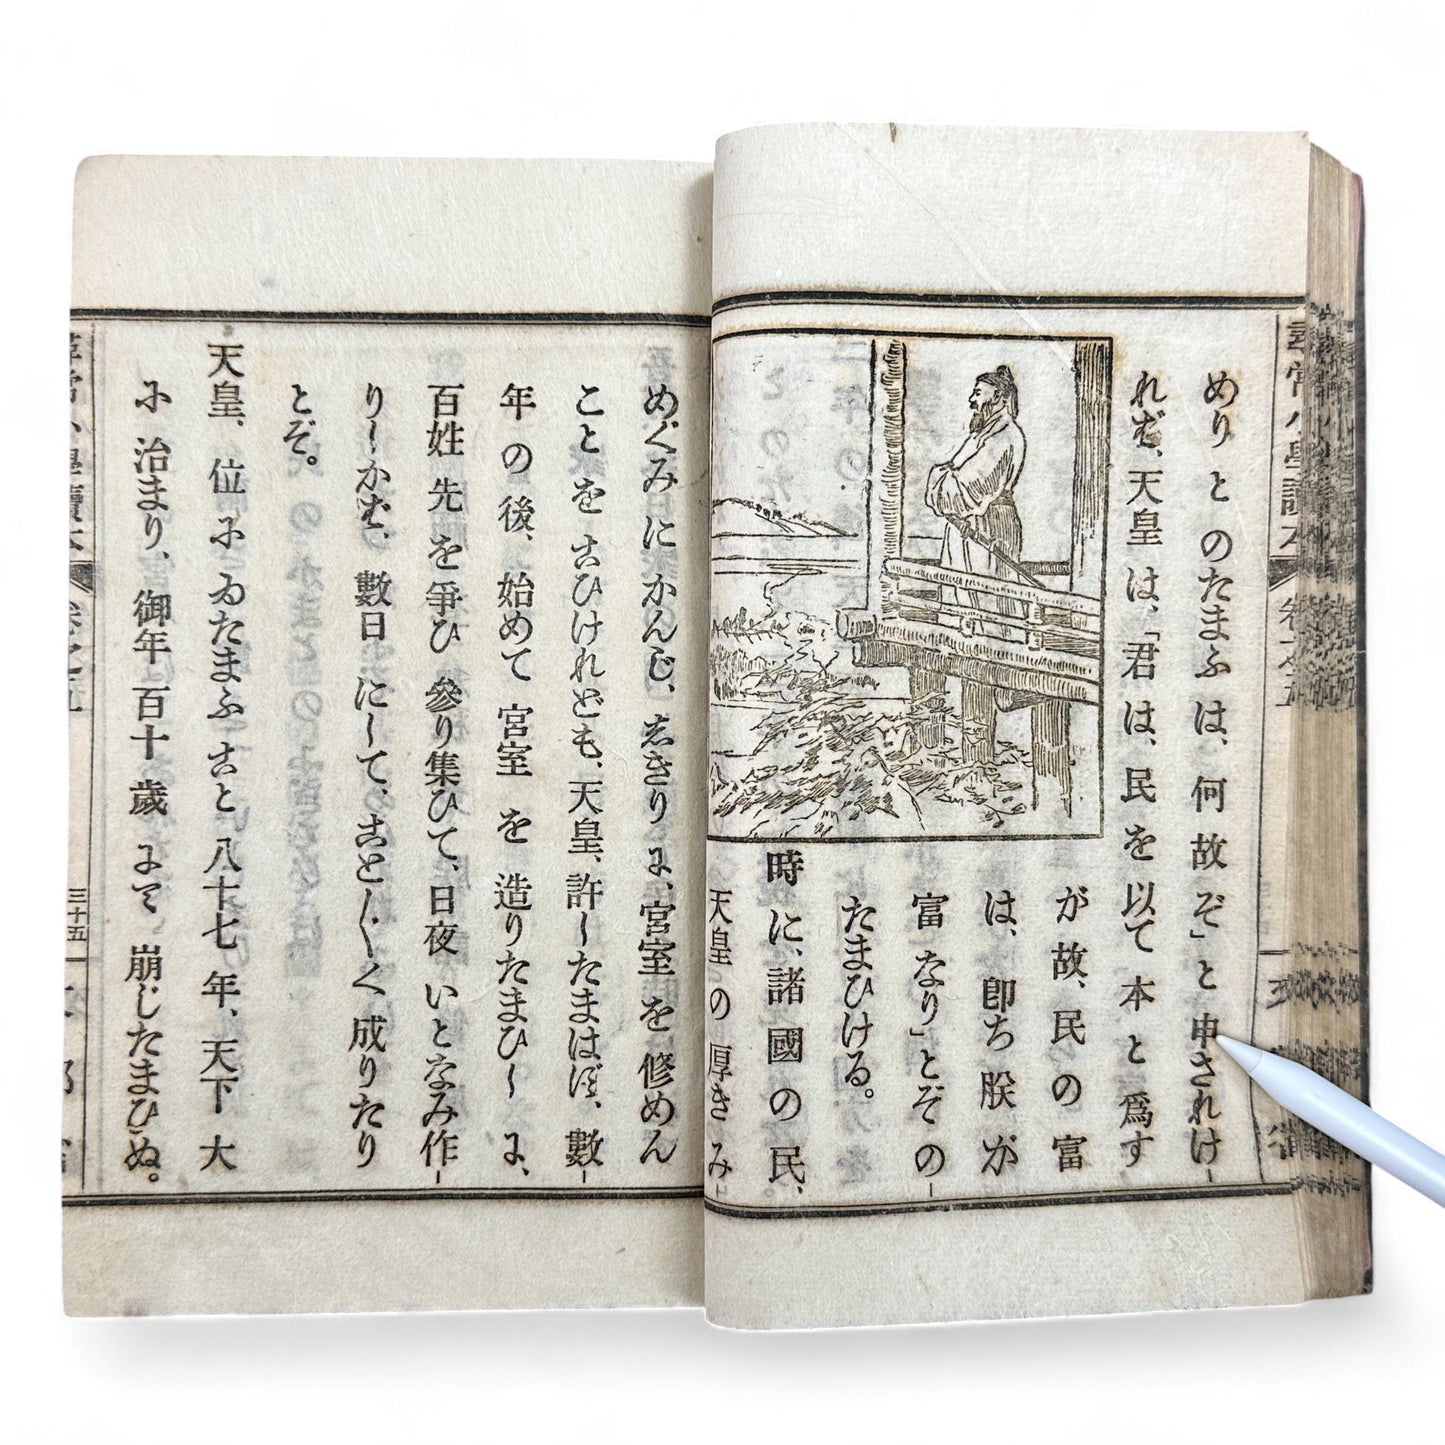 めりとのたまふは、何故ぞ」と申されけ
れば、天皇は、「君は、民を以て本と爲す
が故、民の富
は、卽ち朕が
富なり」とぞの
たまひける。
時に、諸國の民、
天皇の厚きみ
めぐみにかんじ、志きりに、宮室を修めん
ことをこひけれども、天皇、許したまはず、數
年の後、始めて宮室を造りたまひしに、
百姓先を爭ひ參り集ひて、日夜いとなみ作
りしかば、數日にして、ことごとく成りたり
とぞ。
天皇、位にゐたまふこと八十七年、天下大
に治まり、御年百十歲にて崩じたまひぬ。
三十五